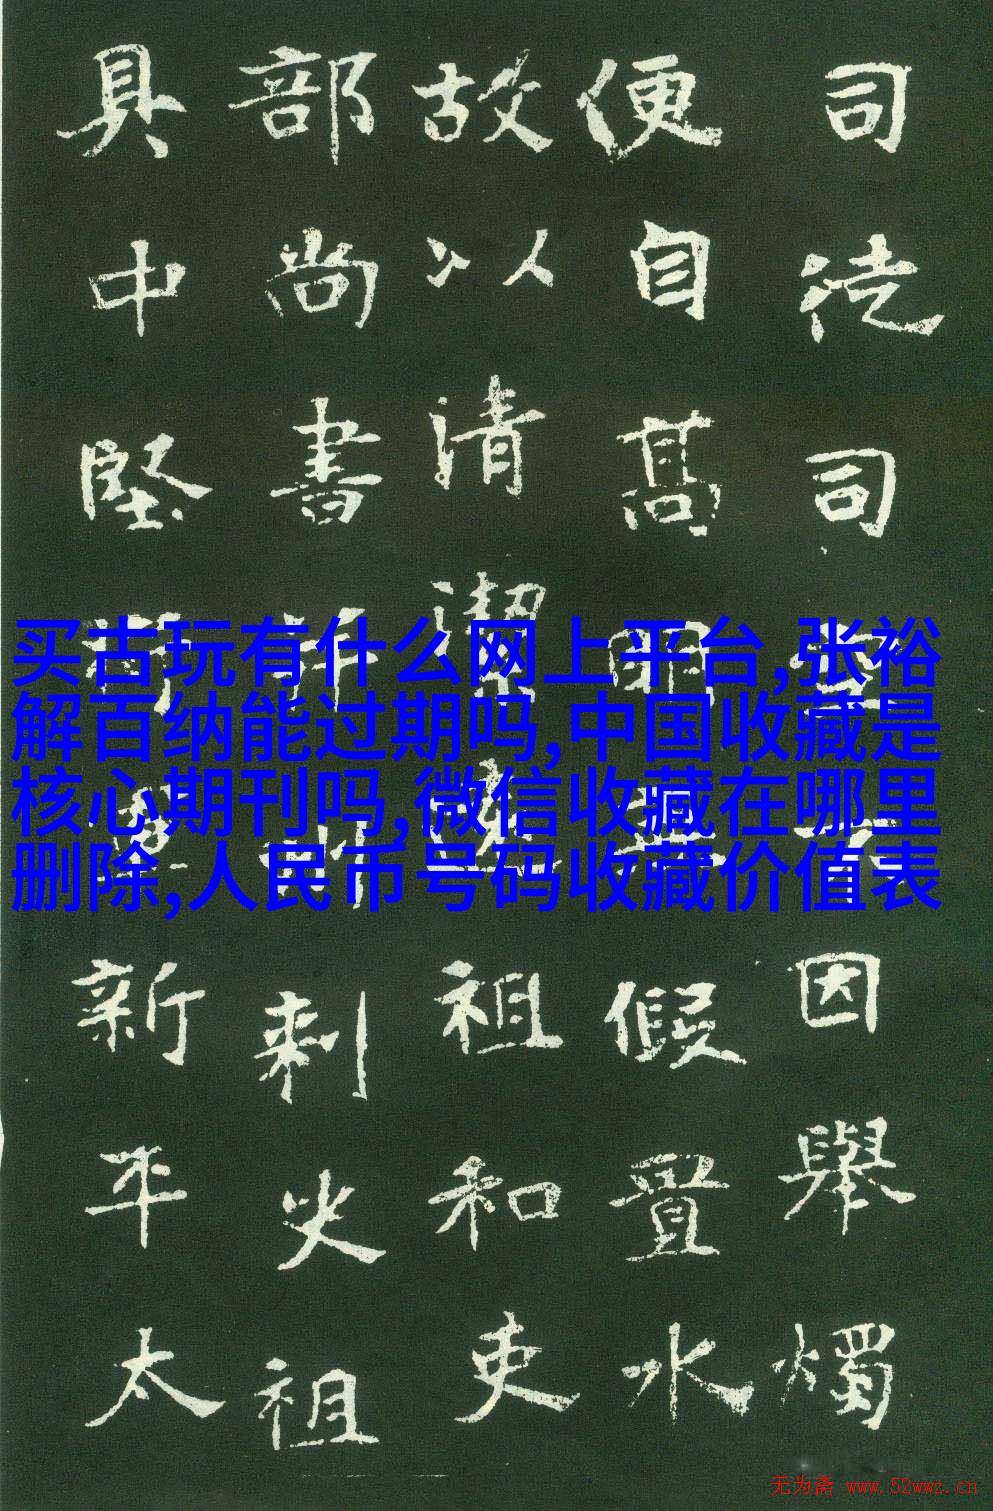 司徒司
因舉燭
便自高明
假置水
故以清潔
祖和吏
部尚書許
刺史祖
具中堅將
新平太
买古玩有什么网上平台,张裕
解百纳能过期吗,中国收藏是
核心期刊吗,微信收藏在哪里
删除,人民币号码收藏价值表
无为斋 www.52wwz.cn